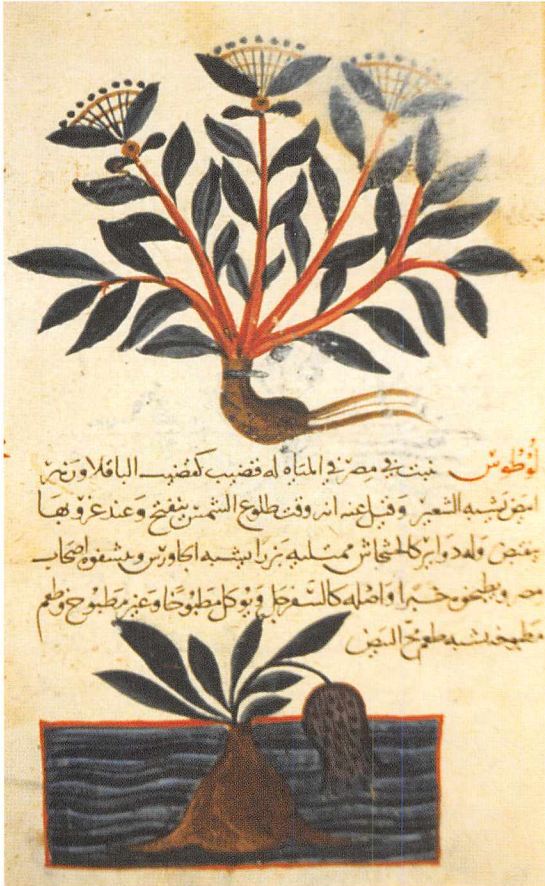 لوطوس نبت في مصر في المياه له قضيب كقضيب الباقلا وزهر
ابيض يشبه الشعير وقيل عنه انه وقت طلوع الشمس ينفتح وعند غروبها
ينقبض وله دواير كالخشخاش ممتليه بزرا يشبه الجاورس ويشفوه اصحاب
مصر ويطبخوه خبزا واصله كالسفرجل ويوكل مطبوخا وغير مطبوخ وطعم
مطبوخه يشبه طعم مح البيض